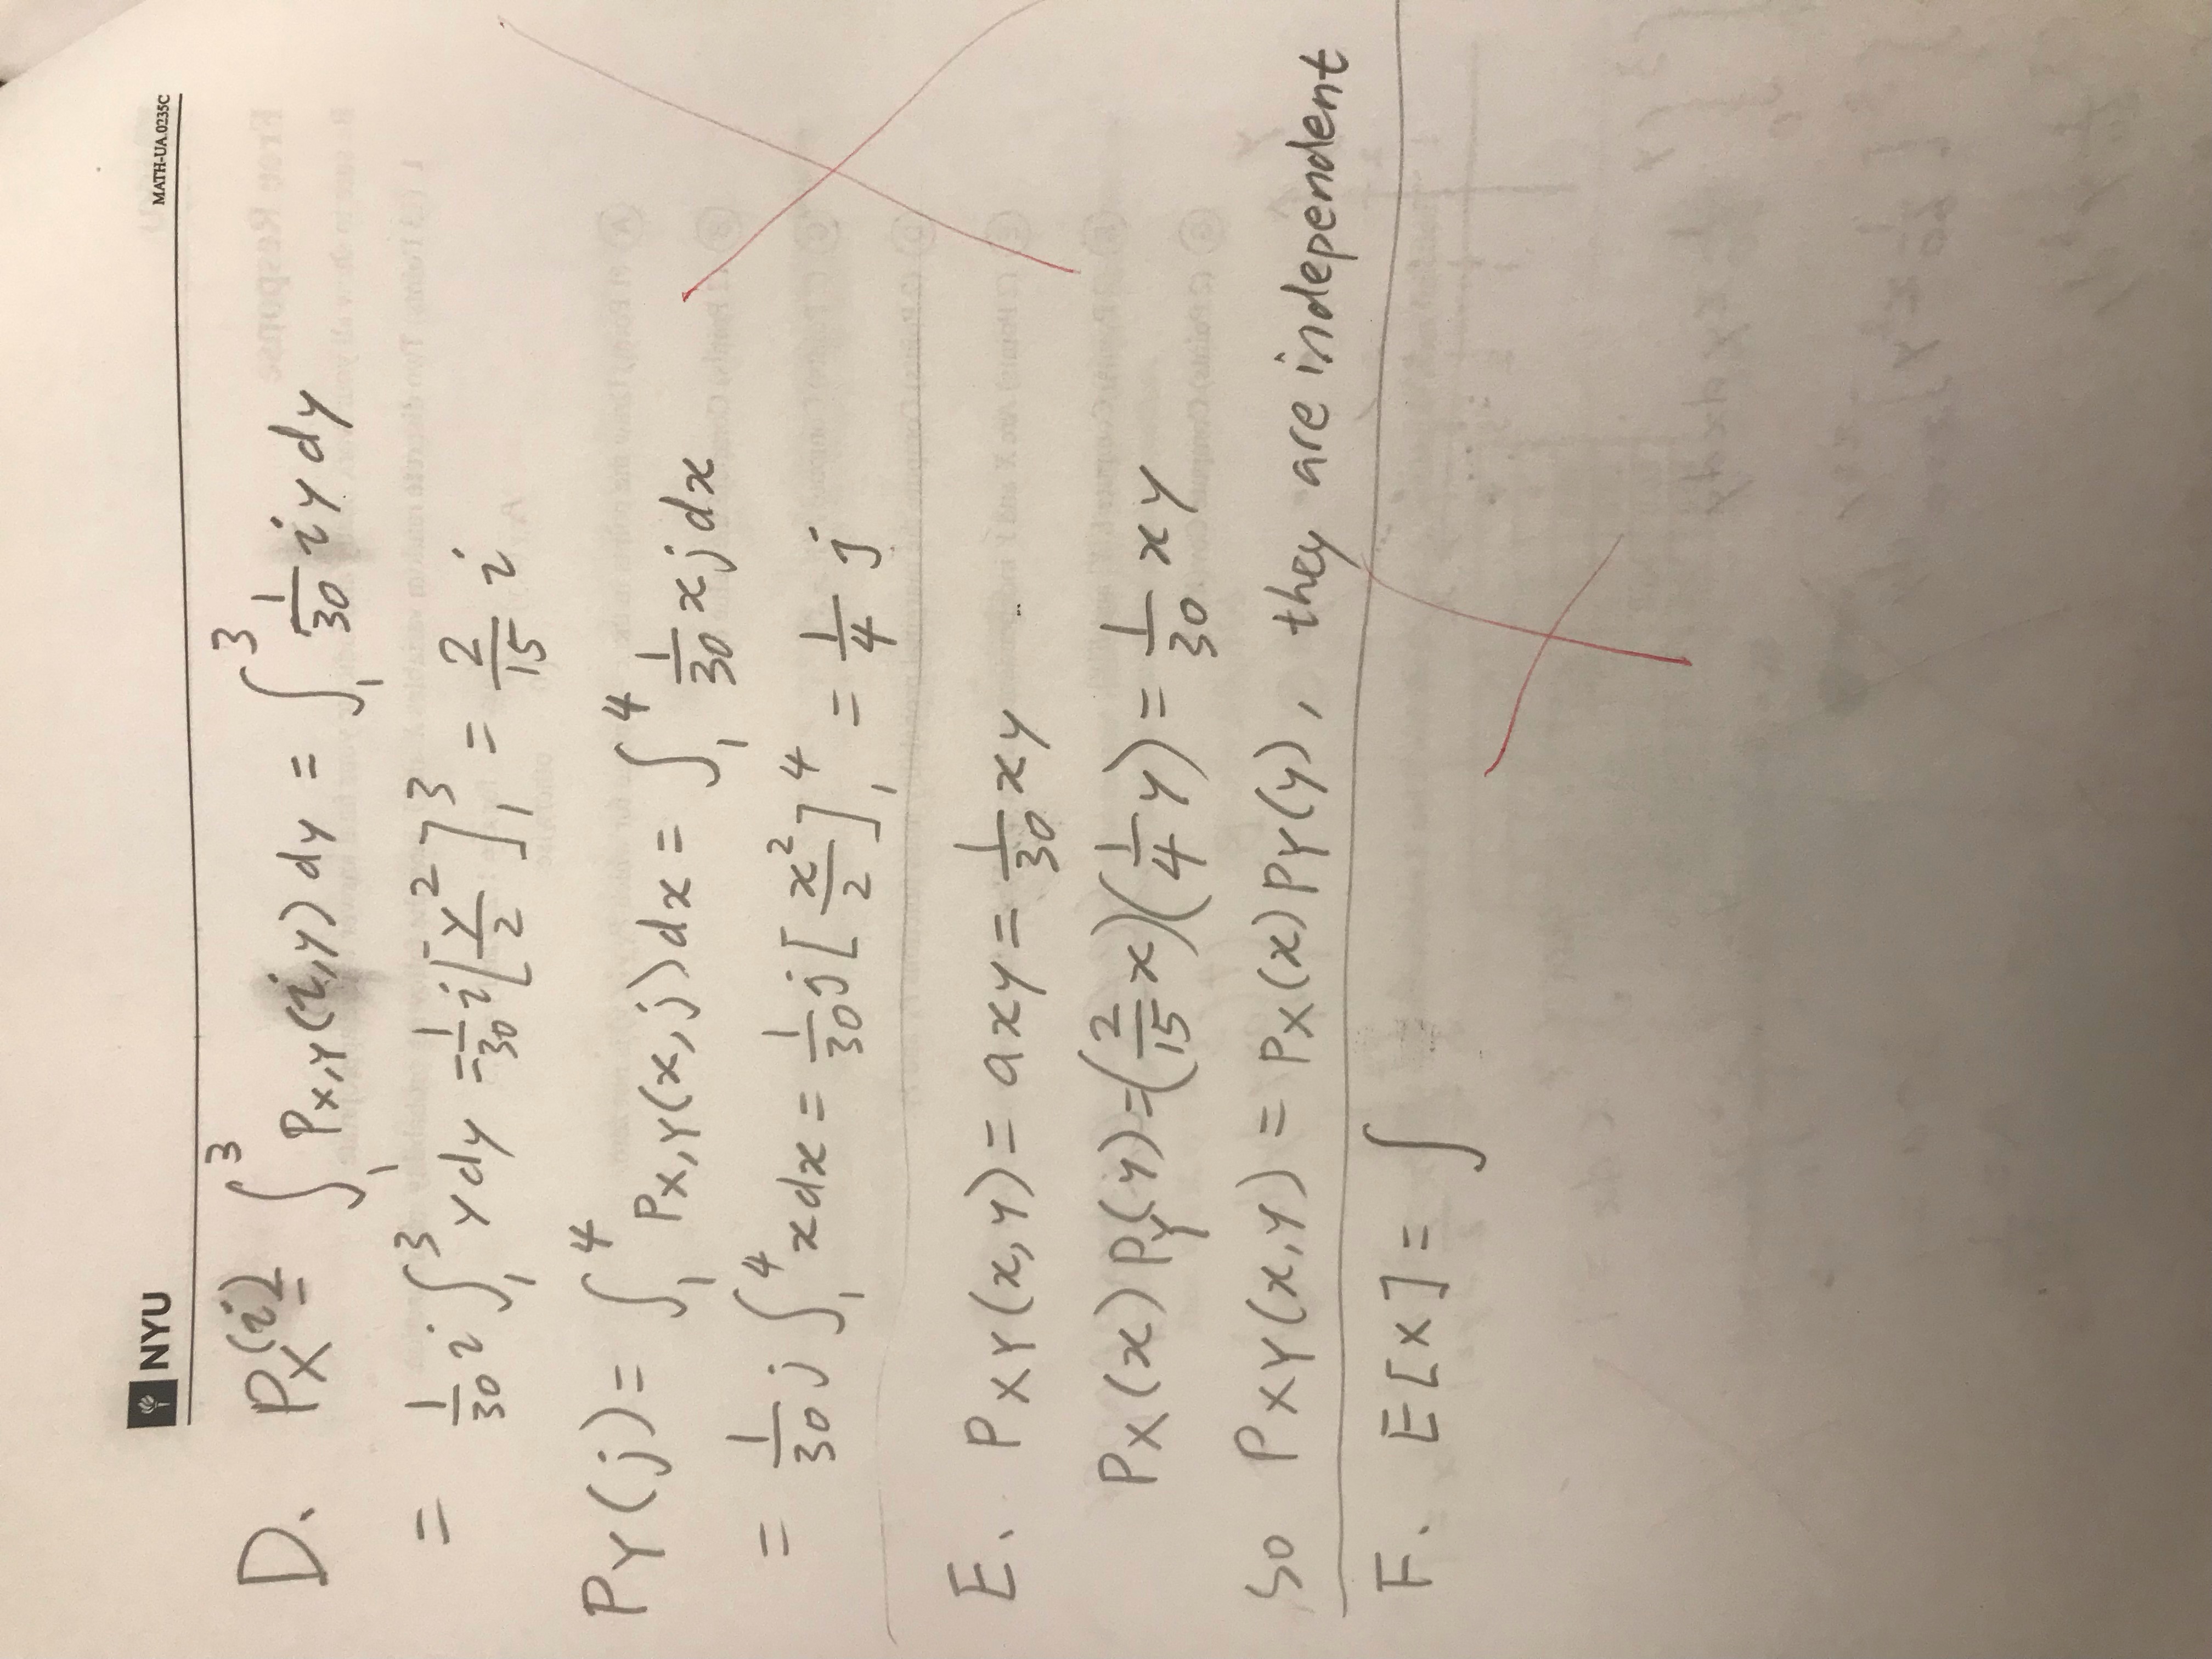 NYU
MATH-UA.0235C
D. P_X(i) = ∫_1^3 P_{X,Y}(i,y) dy = ∫_1^3 1/30 i y dy
= 1/30 i ∫_1^3 y dy = 1/30 i [y^2/2]_1^3 = 2/15 i
P_Y(j) = ∫_1^4 P_{X,Y}(x,j) dx = ∫_1^4 1/30 x j dx
= 1/30 j ∫_1^4 x dx = 1/30 j [x^2/2]_1^4 = 1/4 j
E. P_{XY}(x,y) = axy = 1/30 xy
P_X(x) P_Y(y) = (2/15 x)(1/4 y) = 1/30 xy
So P_{XY}(x,y) = P_X(x) P_Y(y), they are independent
F. E[X] = ∫